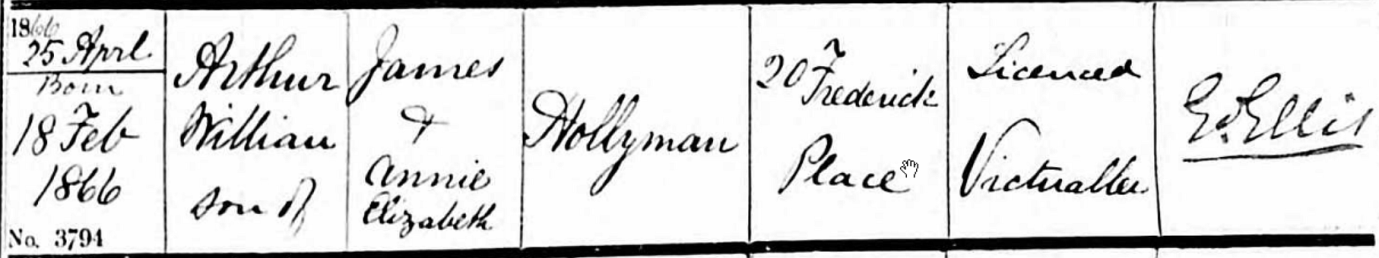 1866
25 April
Born
18 Feb
1866
No. 3794
Arthur
William
son of
James
&
Annie
Elizabeth
Hollyman
20 Frederick
Place
Licenced
Victualler
E. Ellis